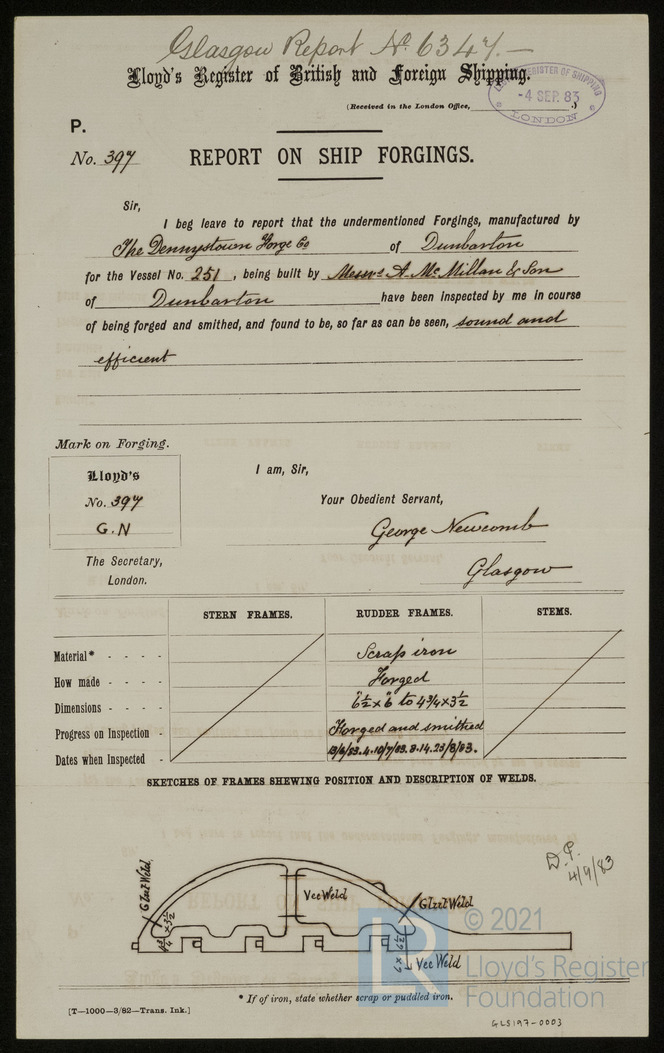 Glasgow Report No. 6347.—
Lloyd's Register of British and Foreign Shipping.
LLOYD'S REGISTER OF SHIPPING
-4 SEP. 83
LONDON
(Received in the London Office,
P.
No. 397
REPORT ON SHIP FORGINGS.
Sir,
I beg leave to report that the undermentioned Forgings, manufactured by
The Dennystown Forge Co of Dunbarton
for the Vessel No. 251, being built by Messrs A. McMillan & Son
of Dunbarton have been inspected by me in course
of being forged and smithed, and found to be, so far as can be seen, sound and
efficient
Mark on Forging.
Lloyd's
No. 397
G.N
I am, Sir,
Your Obedient Servant,
George Newcomb
Glasgow
The Secretary,
London.
STERN FRAMES. RUDDER FRAMES. STEMS.
Material* - - - - Scrap iron
How made - - - - Forged
Dimensions - - - - 6½ x 6 to 4¾ x 3½
Progress on Inspection - Forged and smithed
Dates when Inspected - 13/6/83. 4.10/7/83. 8.14.23/8/83.
SKETCHES OF FRAMES SHEWING POSITION AND DESCRIPTION OF WELDS.
D.P.
4/9/83
Glut Weld
Vee Weld
Glut Weld
4¾ x 3½
Vee Weld
© 2021
LR
Lloyd's Register
Foundation
* If of iron, state whether scrap or puddled iron.
[T—1000—3/82—Trans. Ink.]
GLS197-0003